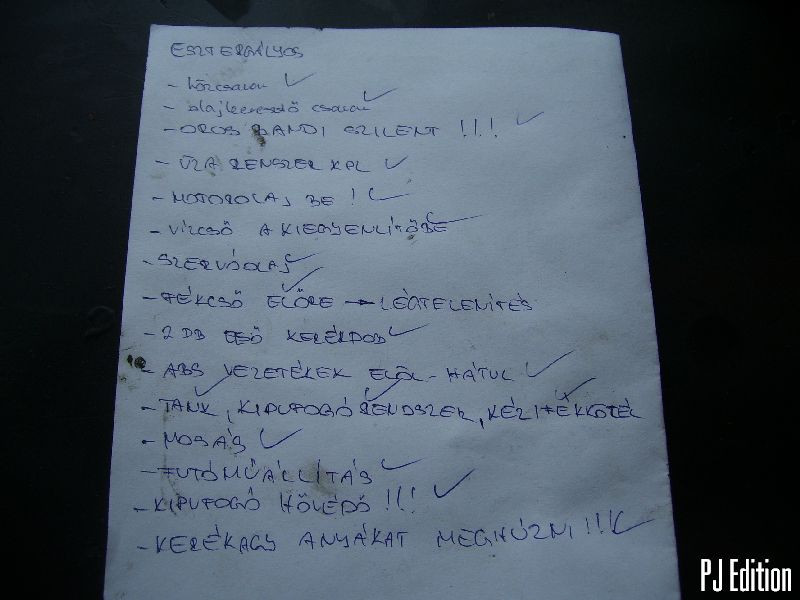 ESZTERGÁLYOS
- olajleeresztő csavar
- OROS BANDI SZILENT !!!
- ÜZA RENSZER KPL
- MOTOROLAJ BE !
- VÍZCSŐ A KIEGYENLÍTŐBE
- SZERVÓOLAJ
- FÉKCSŐ ELŐRE → LÉGTELENÍTÉS
- 2 DB ELSŐ KERÉKDOB
- ABS VEZETÉKEK ELŐL - HÁTUL
- TANK, KIPUFOGÓRENDSZER, KÉZIFÉKKÖTÉL
- MOSÁS
- FUTÓMŰÁLLÍTÁS
- KIPUFOGÓ HŐVÉDŐ !!!
- KERÉKAGY ANYÁKAT MEGHÚZNI !!!
PJ Edition